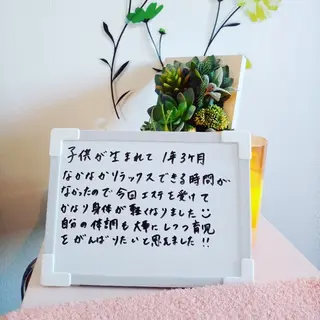 子供が生まれて 1年3ヶ月
なかなかリラックスできる時間が
なかったので今回エステを受けて
かなり身体が軽くなりました
自分の体調も大事にしつつ育児
をがんばりたいと思えました!!